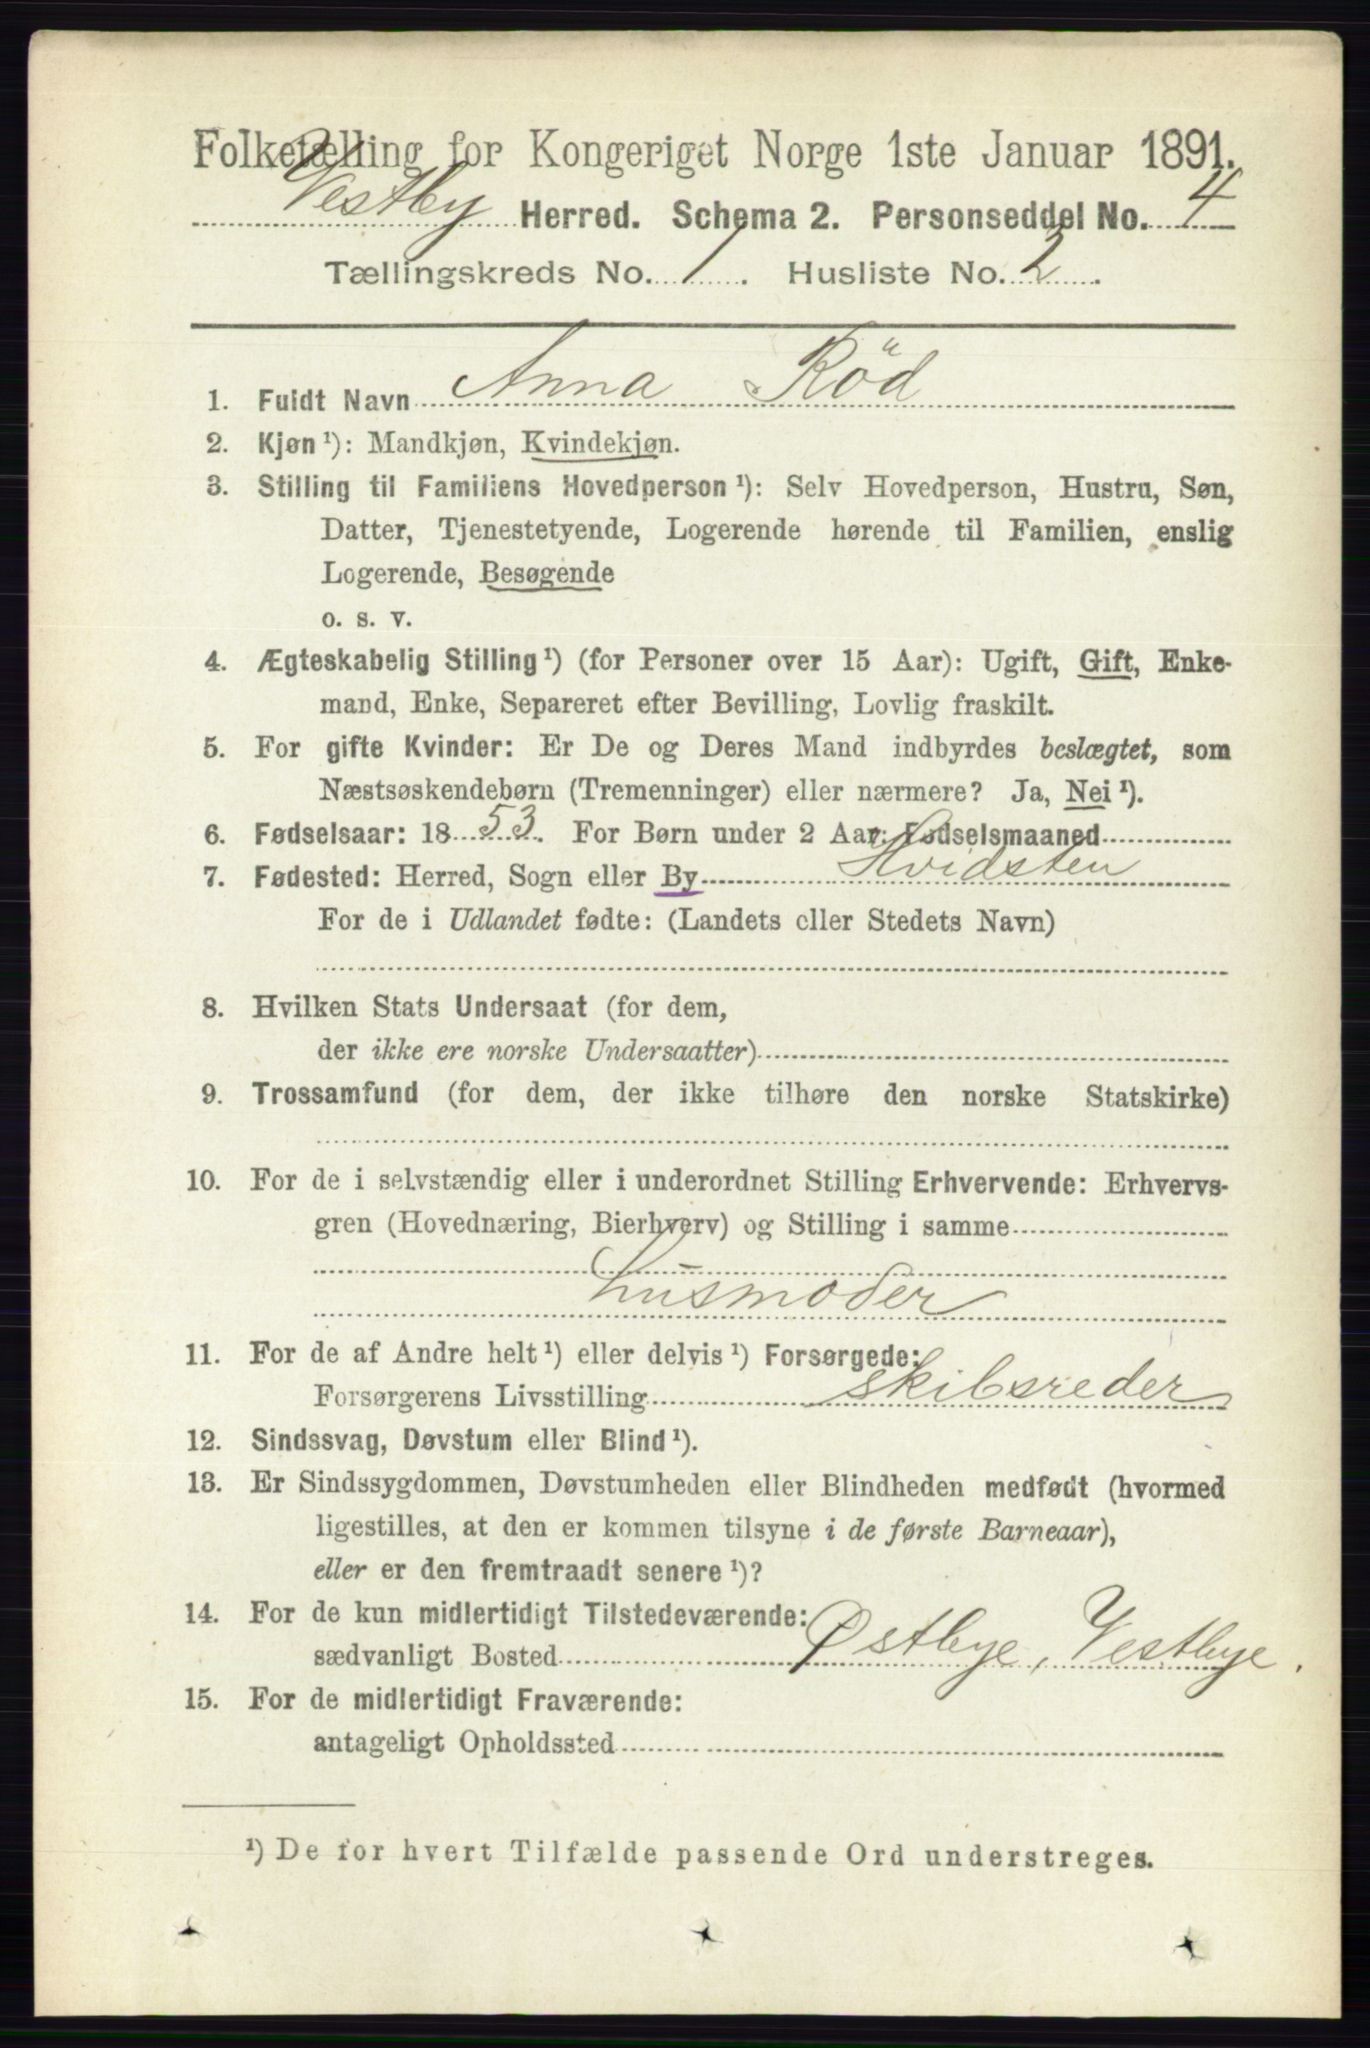 Folketælling for Kongeriget Norge 1ste Januar 1891.
Vestby Herred. Schema 2. Personseddel No. 4
Tællingskreds No. 1. Husliste No. 2.
1. Fuldt Navn Anna Röd
2. Kjøn¹): Mandkjøn, Kvindekjøn.
3. Stilling til Familiens Hovedperson¹): Selv Hovedperson, Hustru, Søn,
Datter, Tjenestetyende, Logerende hørende til Familien, enslig
Logerende, Besøgende
o. s. v.
4. Ægteskabelig Stilling¹) (for Personer over 15 Aar): Ugift, Gift, Enke-
mand, Enke, Separeret efter Bevilling, Lovlig fraskilt.
5. For gifte Kvinder: Er De og Deres Mand indbyrdes beslægtet, som
Næstsøskendebørn (Tremenninger) eller nærmere? Ja, Nei¹).
6. Fødselsaar: 1853. For Børn under 2 Aar: Fødselsmaaned
7. Fødested: Herred, Sogn eller By Hvidsten
For de i Udlandet fødte: (Landets eller Stedets Navn)
8. Hvilken Stats Undersaat (for dem,
der ikke ere norske Undersaatter)
9. Trossamfund (for dem, der ikke tilhøre den norske Statskirke)
10. For de i selvstændig eller i underordnet Stilling Erhvervende: Erhvervs-
gren (Hovednæring, Bierhverv) og Stilling i samme
Husmoder
11. For de af Andre helt¹) eller delvis¹) Forsørgede:
Forsørgerens Livsstilling skibsreder
12. Sindssvag, Døvstum eller Blind¹).
13. Er Sindssygdommen, Døvstumheden eller Blindheden medfødt (hvormed
ligestilles, at den er kommen tilsyne i de første Barneaar),
eller er den fremtraadt senere¹)?
14. For de kun midlertidigt Tilstedeværende:
sædvanligt Bosted Østbye, Vestbye.
15. For de midlertidigt Fraværende:
antageligt Opholdssted
¹) De for hvert Tilfælde passende Ord understreges.